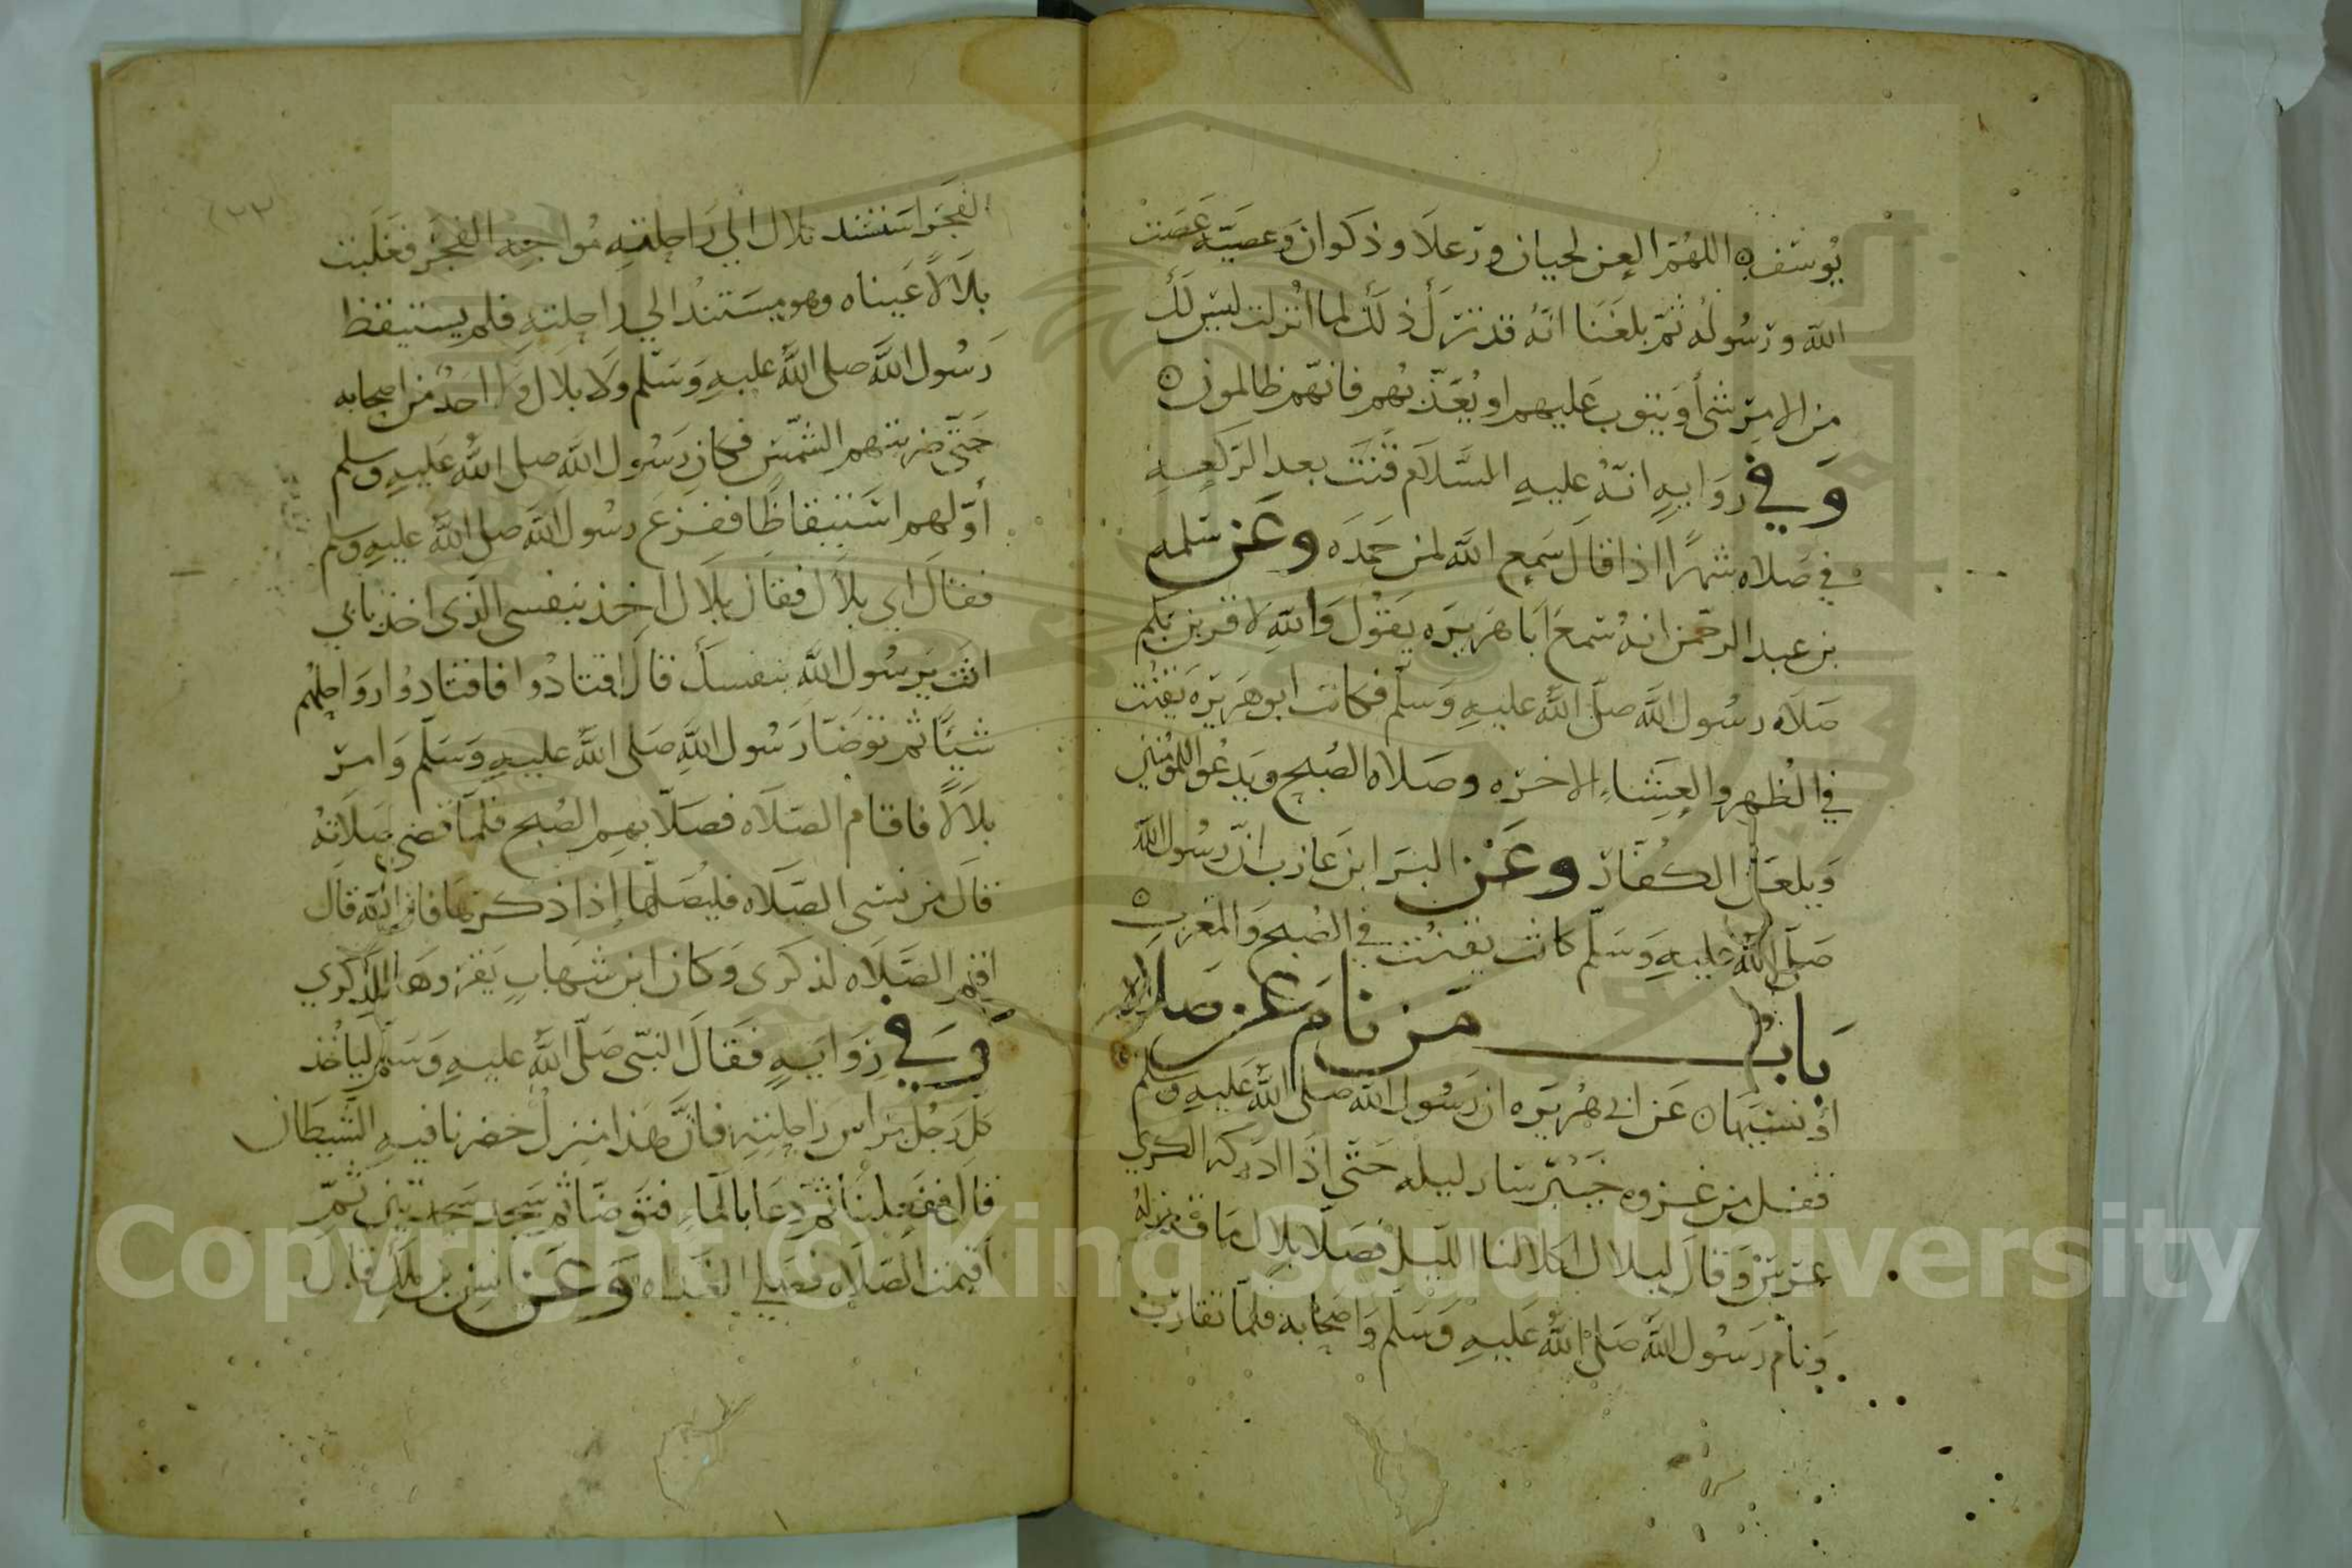 يُوسُف ه اللهُمّ العن لحيان ورعلا وذكوان وعصيّه عَصَت
الله ورسُولُه ثم بلغَنا انّهُ قد تَرَكَ ذلك لما اُنزلت ليسَ لَكَ
من الامرِ شئ أو يتوبَ عَليهم او يُعَذّبهُم فانهّم ظالمون ه
وَفي رِوَايهٍ انّهُ عليهِ السَّلاَم قَنَتَ بعد الرّكعهِ
في صَلاه شهرًا اذا قالَ سَمِع الله لمن حمدَه وعَن سَلمه
بن عبد الرحّمن انهُ سَمعَ اَبَا هُرَيرَه يَقُولُ وَاللهِ لاقربن بكم
صَلاَه رسُول الله صلّى اللهُ عليهِ وَسَلّم فكانَ ابو هُريرَه يَقنُتُ
في الظُهر والعِشَاءِ الاخرَه وصَلاه الصُبح ويَدعُوا للمُؤمنين
وَيلعَن الكُفّارَ وعَن البَرا ابن عازب انّ رسُول الله
صَلّى اللهُ عليهِ وَسَلّم كانَ يقنُتُ في الصُبح وَالمغرِب ه
بَاب مَن نامَ عَن صَلاه
أو نسيَها ه عَن ابى هُرَيرَه ان رَسُول الله صلى اللهُ عَليهِ وسلم
قفَل من غزوه خَيْبَر سَار ليله حَتّى إذَا ادركه الكَري
عرّسَ وَقالَ لبلال اكلا لنا الليل فصَلّا بلال مَا قُدِرَ لهُ
وَنامَ رَسُول اللهِ صَلى اللهُ عَليهِ وَسَلم وَاصحَابه فلمّا تقارَبَ
الفَجَر اسَتنَد بلال الي رَاحِلتهِ مُواجِهَ الفجر فَغَلَبت
بلاَلاً عَيناه وهو مِسَتندُ الي راحِلتهِ فلم يستيقظ
رَسُول اللهَ صلى اللهُ عليهِ وَسَلّم ولا بلال وَلا احَدٌ من اصحابه
حَتّى ضربتهم الشمّس فكان رَسُول الله صلى اللهُ عَليهِ وسلم
أوّلهم استيقاظًا ففزعَ رسُول اللهَ صلى اللهُ عليهِ وسلم
فقالَ اي بلاَل فقال بلاَل اخذ بنفسي الذي اخذ بابي
انتَ يَرسُولَ اللهَ بنفسك قالَ اقتادُوا فاقتادوُا روَاحِلهُم
شيئًا ثم توَضّا رَسُول اللهِ صَلى اللهُ عليهِ وَسَلّم وَامرَ
بلاَلاً فاقام الصّلاَه فصَلّا بهم الصُبح فلمّا قضى صَلاَتهُ
قالَ مَن نسى الصّلاه فليُصَلّها إذا ذكرها فان الله قال
اقم الصّلاَه لذكرى وَكان ابن شهابِ يَقرؤها للذِكري
وَفي رِوَايَهٍ فقالَ النبّى صَلّى اللهُ عليهِ وَسَلم ليَأخُذ
كل رَجُل برَاسِ رَاحِلتِهِ فانَّ هَذا منزلُ حَضرنا فيهِ الشَيطان
قالَ ففَعَلنَا ثم دَعَا بالمَاءِ فتوَضّا ثم سَجد سَجدَتين ثمّ
اقيمت الصّلاَه فصَلي الغداه وَعَن انس بن ملك قالَ